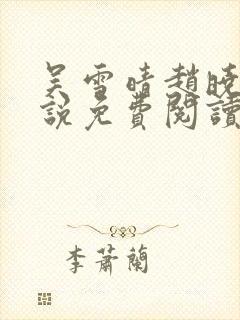 吴雪晴趙曉
說免費閱讀
李蕭蘭